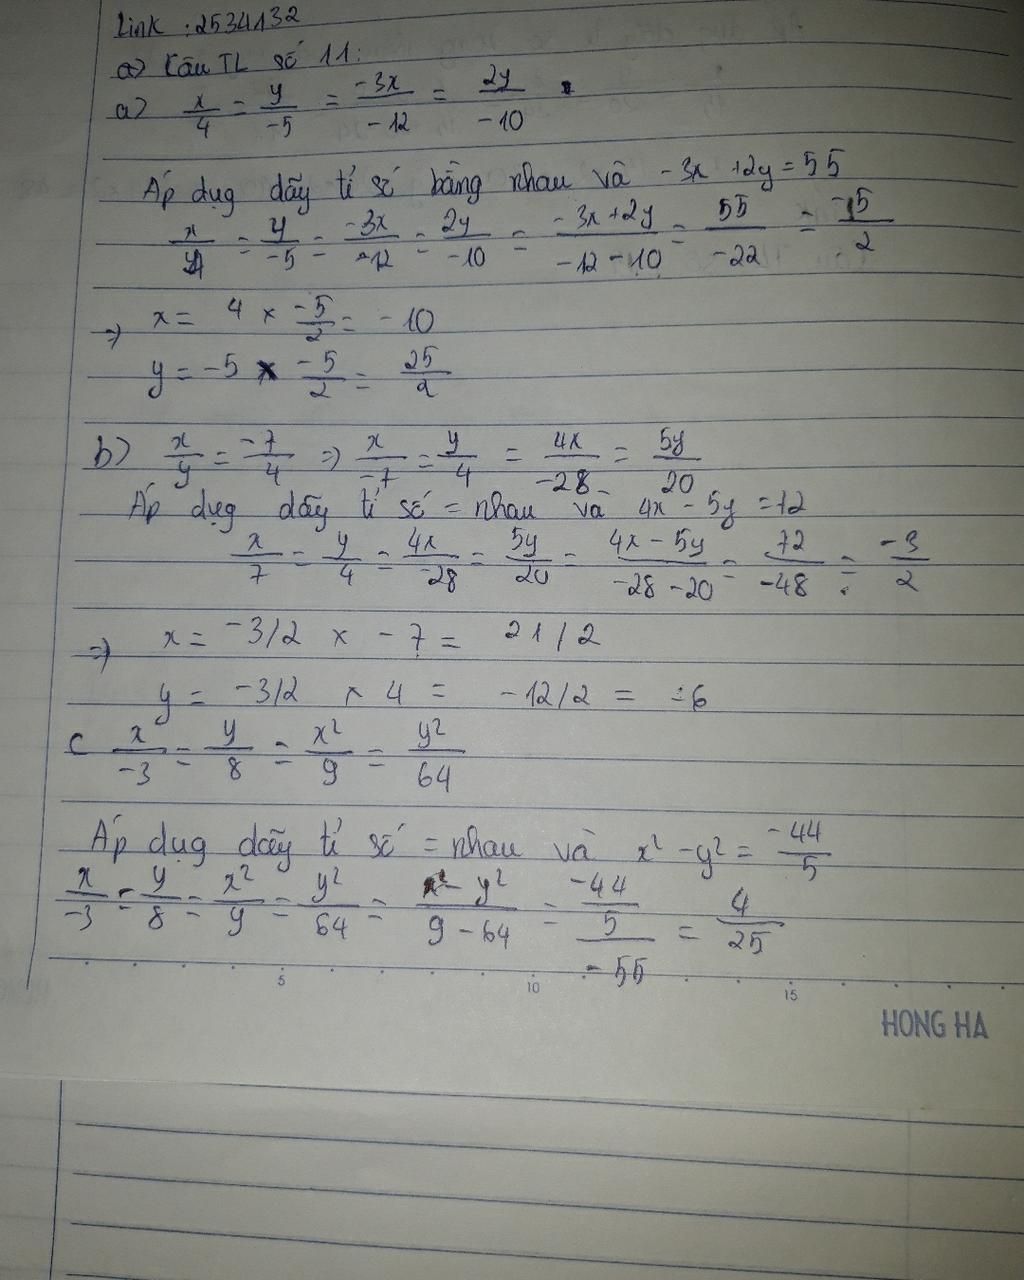 Link : 2534132
a) Câu TL số 11:
a) x/4 = y/-5 = -3x/-12 = 2y/-10
Áp dụg dãy tỉ số bằng nhau và -3x + 2y = 55
x/4 = y/-5 = -3x/-12 = 2y/-10 = -3x+2y/-12-10 = 55/-22 = -5/2
=> x = 4 × -5/2 = -10
y = -5 × -5/2 = 25/2
b) x/y = -7/4 => x/-7 = y/4 = 4x/-28 = 5y/20
Áp dụg dãy tỉ số = nhau và 4x - 5y = 72
x/7 = y/4 = 4x/-28 = 5y/20 = 4x-5y/-28-20 = 72/-48 = -3/2
=> x = -3/2 × -7 = 21/2
y = -3/2 × 4 = -12/2 = -6
c x/-3 = y/8 = x²/9 = y²/64
Áp dụg dãy tỉ số = nhau và x² - y² = -44/5
x/-3 = y/8 = x²/9 = y²/64 = x²-y²/9-64 = -44/5/-55 = 4/25
5 10 15
HONG HA